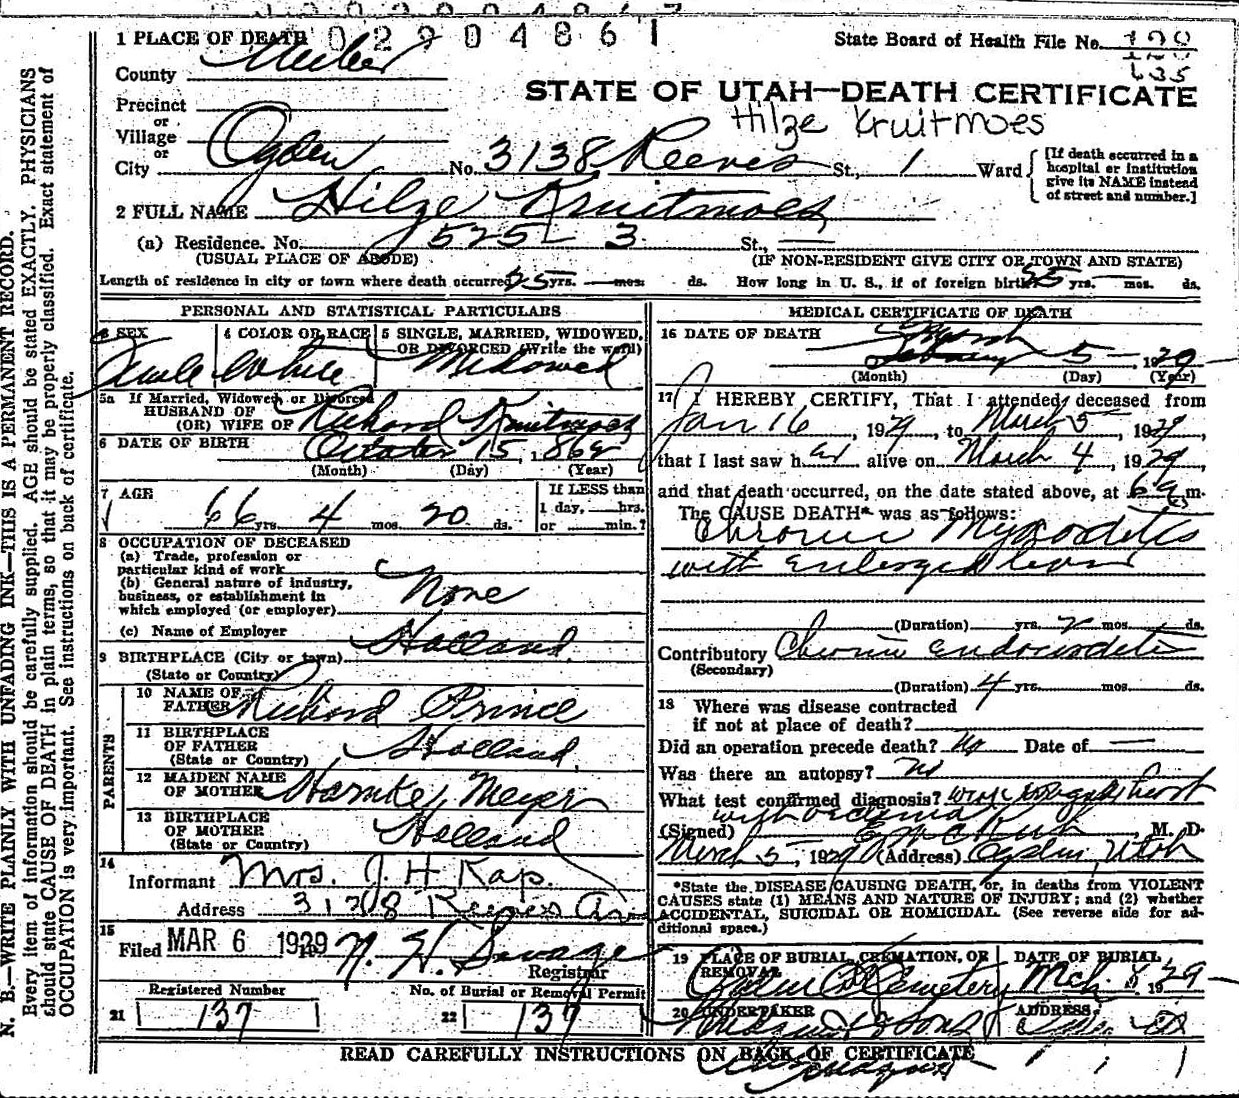 02904861
1 PLACE OF DEATH
State Board of Health File No. 120
635
County Weber
STATE OF UTAH—DEATH CERTIFICATE
Precinct
or
Hilze Kruitmoes
Village
or
City Ogden No. 3138 Reeves St., 1 Ward
[If death occurred in a hospital or institution give its NAME instead of street and number.]
2 FULL NAME Hilze Kruitmoes
(a) Residence. No. 525 — 3 St.,
(USUAL PLACE OF ABODE) (IF NON-RESIDENT GIVE CITY OR TOWN AND STATE)
Length of residence in city or town where death occurred 25 yrs. mos. ds. How long in U. S., if of foreign birth 25 yrs. mos. ds.
PERSONAL AND STATISTICAL PARTICULARS
3 SEX
4 COLOR OR RACE
5 SINGLE, MARRIED, WIDOWED, OR DIVORCED (Write the word)
Female White Widowed
5a If Married, Widowed, or Divorced
HUSBAND OF
(OR) WIFE OF Richard Kruitmoes
6 DATE OF BIRTH October 15, 1862
(Month) (Day) (Year)
7 AGE
66 yrs. 4 mos. 20 ds.
If LESS than
1 day, hrs.
or min.?
8 OCCUPATION OF DECEASED
(a) Trade, profession or
particular kind of work
(b) General nature of industry,
business, or establishment in
which employed (or employer) None
(c) Name of Employer
9 BIRTHPLACE (City or town) Holland
(State or Country)
PARENTS
10 NAME OF
FATHER Richard Prince
11 BIRTHPLACE
OF FATHER Holland
(State or Country)
12 MAIDEN NAME
OF MOTHER Harmke Meyer
13 BIRTHPLACE
OF MOTHER Holland
(State or Country)
14
Informant Mrs. J. H Kap.
Address 3138 Reeves Ave
15
Filed MAR 6 1929 N. H. Savage
Registrar
Registered Number No. of Burial or Removal Permit
21 137 22 137
MEDICAL CERTIFICATE OF DEATH
16 DATE OF DEATH March
February 5 — 1929
(Month) (Day) (Year)
17 I HEREBY CERTIFY, That I attended deceased from
Jan 16, 1929, to March 5, 1929,
that I last saw her alive on March 4, 1929,
and that death occurred, on the date stated above, at 6 a m.
The CAUSE DEATH* was as follows:
Chronic Myocarditis
with Enlarged
(Duration) yrs. mos. ds.
Contributory Chronic endocarditis
(Secondary)
(Duration) 4 yrs. mos. ds.
18 Where was disease contracted
if not at place of death?
Did an operation precede death? No Date of —
Was there an autopsy? no
What test confirmed diagnosis?
(Signed) M. D.
March 5, 1929 (Address) Ogden, Utah
*State the DISEASE CAUSING DEATH, or, in deaths from VIOLENT
CAUSES state (1) MEANS AND NATURE OF INJURY; and (2) whether
ACCIDENTAL, SUICIDAL OR HOMICIDAL. (See reverse side for ad-
ditional space.)
19 PLACE OF BURIAL, CREMATION, OR REMOVAL
DATE OF BURIAL,
Ogden Cemetery Mch. 8 1929
20 UNDERTAKER
ADDRESS
& Sons
READ CAREFULLY INSTRUCTIONS ON BACK OF CERTIFICATE
N. B.—WRITE PLAINLY WITH UNFADING INK—THIS IS A PERMANENT RECORD.
Every item of information should be carefully supplied. AGE should be stated EXACTLY. PHYSICIANS
should state CAUSE OF DEATH in plain terms, so that it may be properly classified. Exact statement of
OCCUPATION is very important. See instructions on back of certificate.